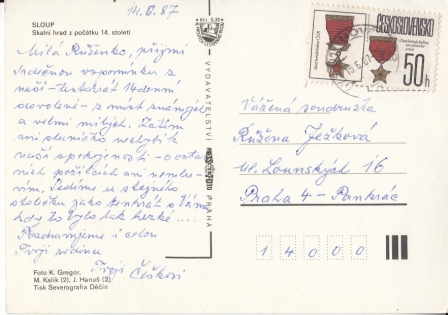 14.6.87
SLOUP
Skalní hrad z počátku 14. století
Milá Růženko, přijmi
srdečnou vzpomínku z
naší - tentokrát 14denní
dovolené - z míst známých
a velmi milých. Zatím
ani sluníčko nechybí k
naší spokojenosti - o ostat-
ních požitcích ani nemlu-
vím. Sedíme u stejného
stolečku jako tenkrát s Vámi,
kdy to bylo tak hezké ...
Pozdravujeme i celou
Tvoji rodinu
Tvoji Češkovi
Foto K. Gregor,
M. Kalík (2), J. Hanuš (2)
Tisk Severografia Děčín
VYDAVATELSTVÍ
PRAHA
ČESKOSLOVENSKO
50h
Vážená soudružka
Růžena Ježková
ul. Lounských 16
Praha 4 - Pankrác
14000